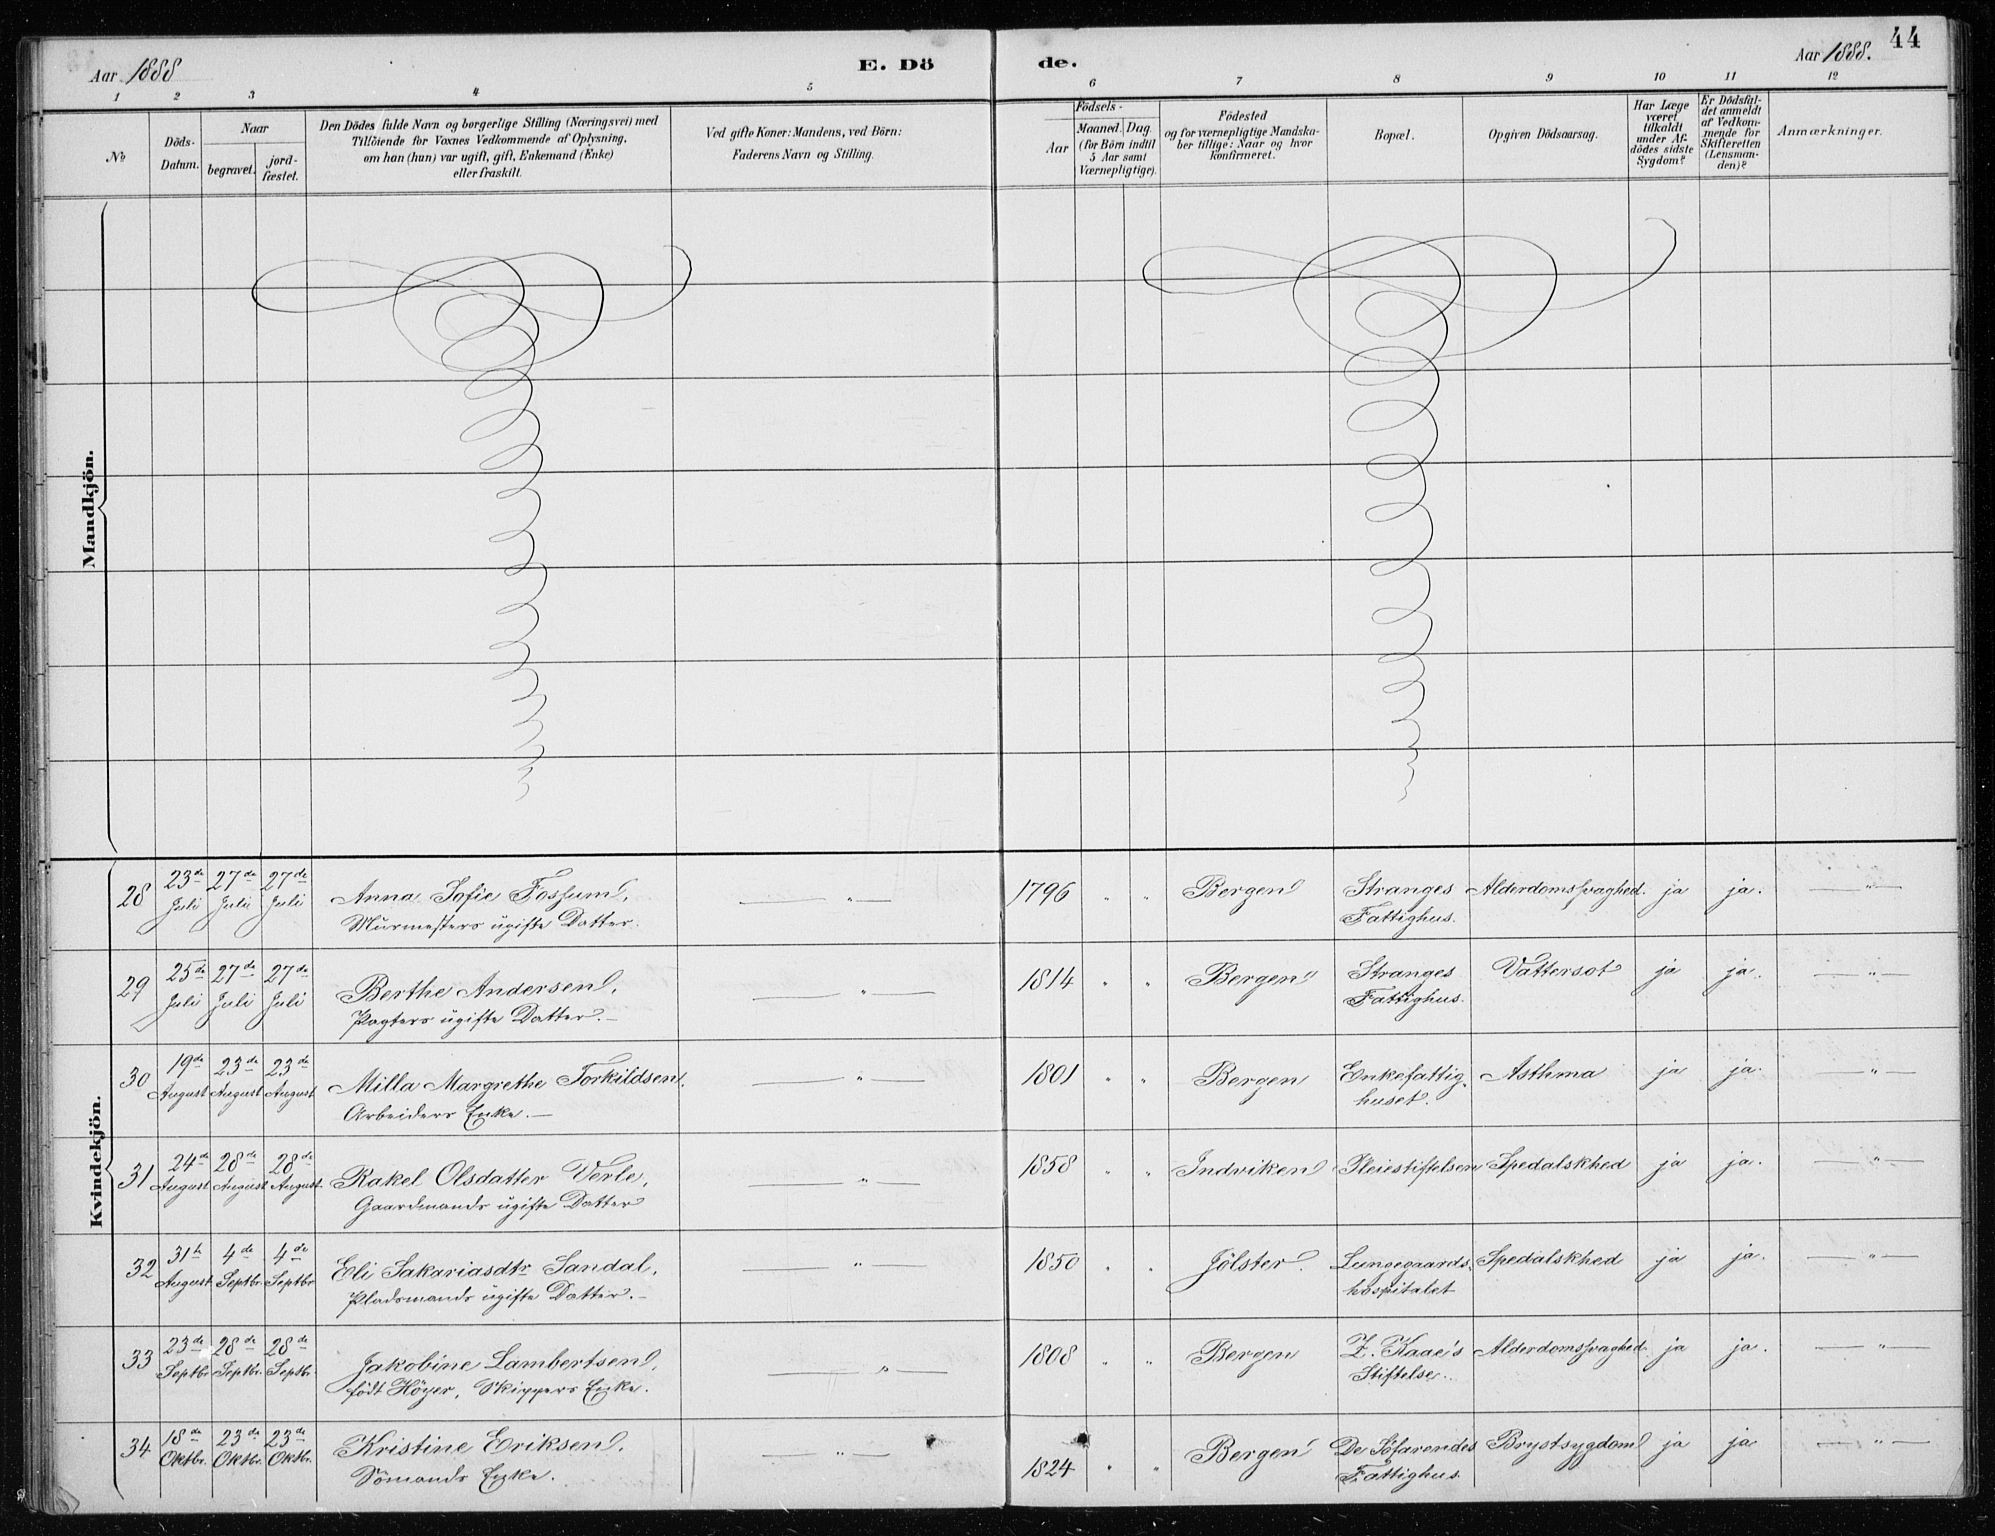 Aar 1888
E. Dö
de.
Aar 1888.
44
1 2 3 4 5 6 7 8 9 10 11 12
No
Döds-
Datum.
Naar
begravet.
jord-
fæstet.
Den Dödes fulde Navn og borgerlige Stilling (Næringsvei) med
Tilföiende for Voxnes Vedkommende af Oplysning,
om han (hun) var ugift, gift, Enkemand (Enke)
eller fraskilt.
Ved gifte Koner: Mandens, ved Börn:
Faderens Navn og Stilling.
Födsels-
Aar
Maaned.
Dag.
(for Börn indtil
5 Aar samt
Værnepligtige).
Födested
og for værnepligtige Mandska-
ber tillige: Naar og hvor
konfirmeret.
Bopæl.
Opgiven Dödsaarsag.
Har Læge
været
tilkaldt
under Af-
dödes sidste
Sygdom?
Er Dödsfal-
det anmeldt
af Vedkom-
mende for
Skifteretten
(Lensman-
den)?
Anmærkninger.
Mandkjön.
Kvindekjön.
28 23de Juli 27de Juli 27de Juli Anna Sofie Fossum, — " — 1796 " " Bergen Stranges Alderdomssvaghed. ja ja. — " —
Murmesters ugifte Datter. Fattighus.
29 25de Juli 27de Juli 27de Juli Berthe Andersen, — " — 1814 " " Bergen Stranges Vattersot ja ja. — " —
Pagters ugifte Datter. — Fattighus.
30 19de August 23de August 23de August Milla Margrethe Torkildsen, — " — 1801 " " Bergen Enkefattig- Asthma ja ja. — " —
Arbeiders Enke. — huset.
31 24de August 28de August 28de August Rakel Olsdatter Verle, — " — 1858 " " Indviken Pleiestiftelsen Spedalskhed ja ja. — " —
Gaardmands ugifte Datter
32 31te August 4de Septbr. 4de Septbr. Eli Sakariasdtr Sandal, — " — 1850 " " Jölster. Lungegaards- Spedalskhed ja ja. — " —
Pladsmands ugifte Datter. — hospitalet
33 23de Septbr. 28de Septbr. 28de Septbr. Jakobine Lambertsen, — " — 1808 " " Bergen Z. Kaae's Alderdomssvaghed. ja ja. — " —
födt Höyer, Skippers Enke. Stiftelse.
34 18de Oktbr. 23de Oktbr. 23de Oktbr. Kristine Eriksen, — " — 1824 " " Bergen De Söfarendes Brystsygdom ja ja — " —
Sömands Enke. Fattighus.